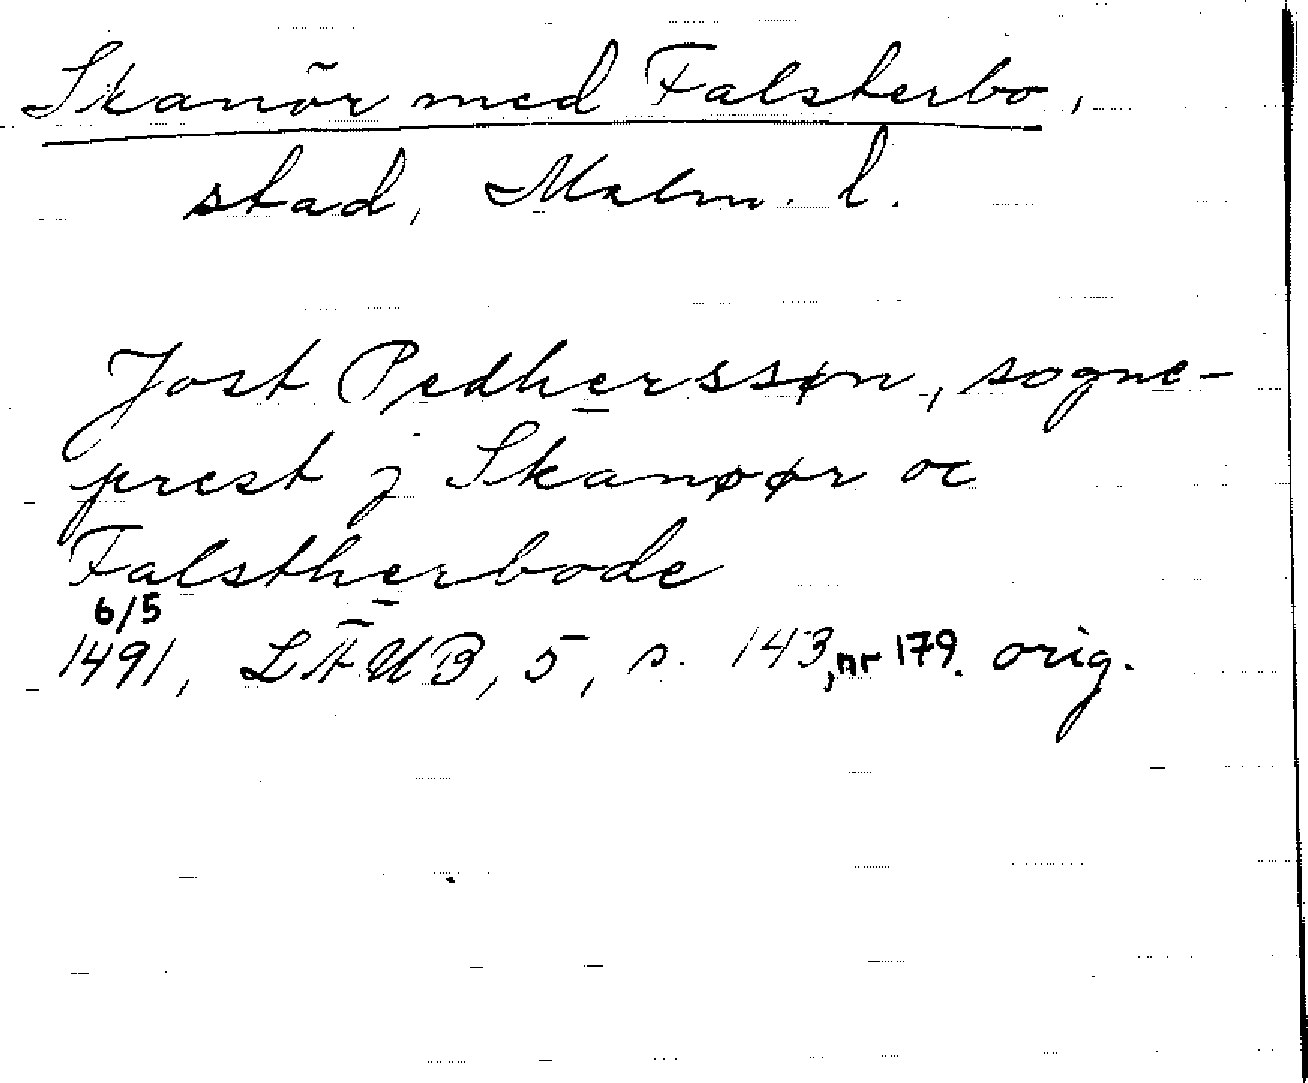 Skanör med Falsterbo,
stad, Malm. l.
Jost Pedherssøn, sogne-
prest j Skanøør oc
Falstherbode
6/5
1491, LÄUB, 5, s. 143, nr 179. orig.